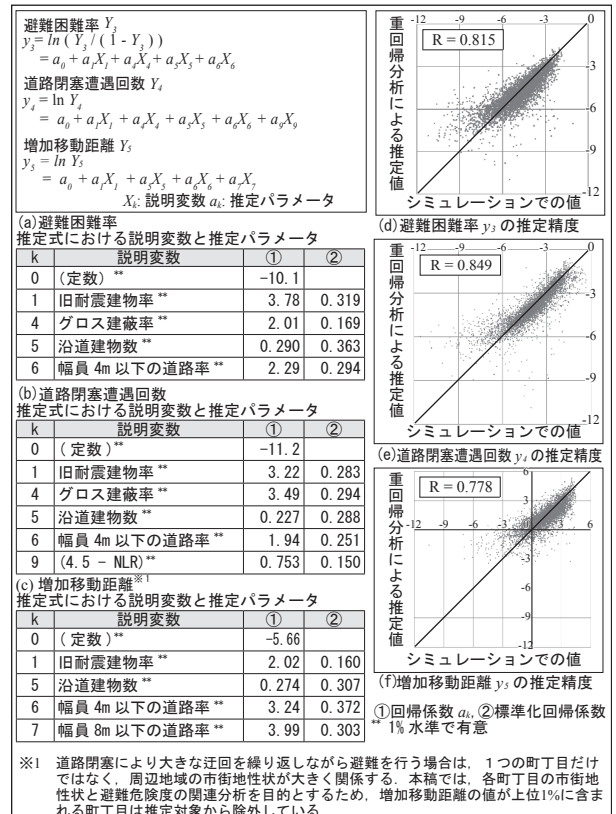 避難困難率 Y3
y3= ln ( Y3 / ( 1 - Y3 ) )
= a0 + a1X1 + a4X4 + a5X5 + a6X6
道路閉塞遭遇回数 Y4
y4 = ln Y4
= a0 + a1X1 + a4X4 + a5X5 + a6X6 + a9X9
増加移動距離 Y5
y5 = ln Y5
= a0 + a1X1 + a5X5 + a6X6 + a7X7
Xk: 説明変数 ak: 推定パラメータ
(a)避難困難率
推定式における説明変数と推定パラメータ
k 説明変数 ① ②
0 (定数) ** -10.1
1 旧耐震建物率 ** 3.78 0.319
4 グロス建蔽率 ** 2.01 0.169
5 沿道建物数 ** 0.290 0.363
6 幅員 4m 以下の道路率 ** 2.29 0.294
(b)道路閉塞遭遇回数
推定式における説明変数と推定パラメータ
k 説明変数 ① ②
0 ( 定数 )** -11.2
1 旧耐震建物率 ** 3.22 0.283
4 グロス建蔽率 ** 3.49 0.294
5 沿道建物数 ** 0.227 0.288
6 幅員 4m 以下の道路率 ** 1.94 0.251
9 (4.5 - NLR)** 0.753 0.150
(c) 増加移動距離※1
推定式における説明変数と推定パラメータ
k 説明変数 ① ②
0 ( 定数 )** -5.66
1 旧耐震建物率 ** 2.02 0.160
5 沿道建物数 ** 0.274 0.307
6 幅員 4m 以下の道路率 ** 3.24 0.372
7 幅員 8m 以下の道路率 ** 3.99 0.303
重回帰分析による推定値
-12 -9 -6 -3 0
R = 0.815
-3
-6
-9
-12
シミュレーションでの値
(d)避難困難率 y3 の推定精度
重回帰分析による推定値
-12 -9 -6 -3 0
R = 0.849
-3
-6
-9
-12
シミュレーションでの値
(e)道路閉塞遭遇回数 y4 の推定精度
重回帰分析による推定値
6
R = 0.778
3
-12 -9 -6 -3 0 3 6
-3
-6
-9
-12
シミュレーションでの値
(f)増加移動距離 y5 の推定精度
①回帰係数 ak, ②標準化回帰係数
** 1% 水準で有意
※1 道路閉塞により大きな迂回を繰り返しながら避難を行う場合は，1つの町丁目だけ
ではなく，周辺地域の市街地性状が大きく関係する．本稿では，各町丁目の市街地
性状と避難危険度の関連分析を目的とするため，増加移動距離の値が上位1%に含ま
れる町丁目は推定対象から除外している．